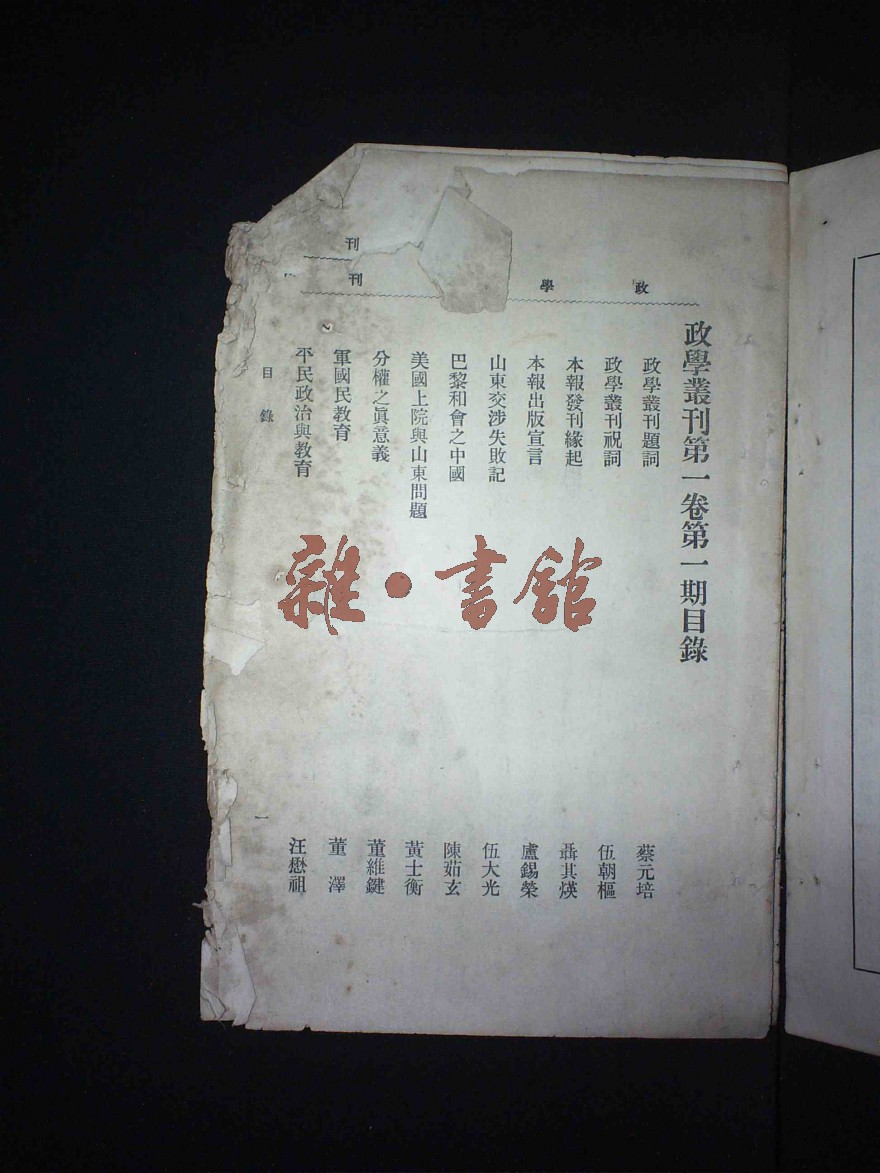 政學　刊
刊
政學叢刊第一卷第一期目錄
政學叢刊題詞　蔡元培
政學叢刊祝詞　伍朝樞
本報發刊緣起　聶其煐
本報出版宣言　盧錫榮
山東交涉失敗記　伍大光
巴黎和會之中國　陳茹玄
美國上院與山東問題　黃士衡
分權之眞意義　董維鍵
軍國民教育　董澤
平民政治與教育　汪懋祖
目錄　一
雜·書館